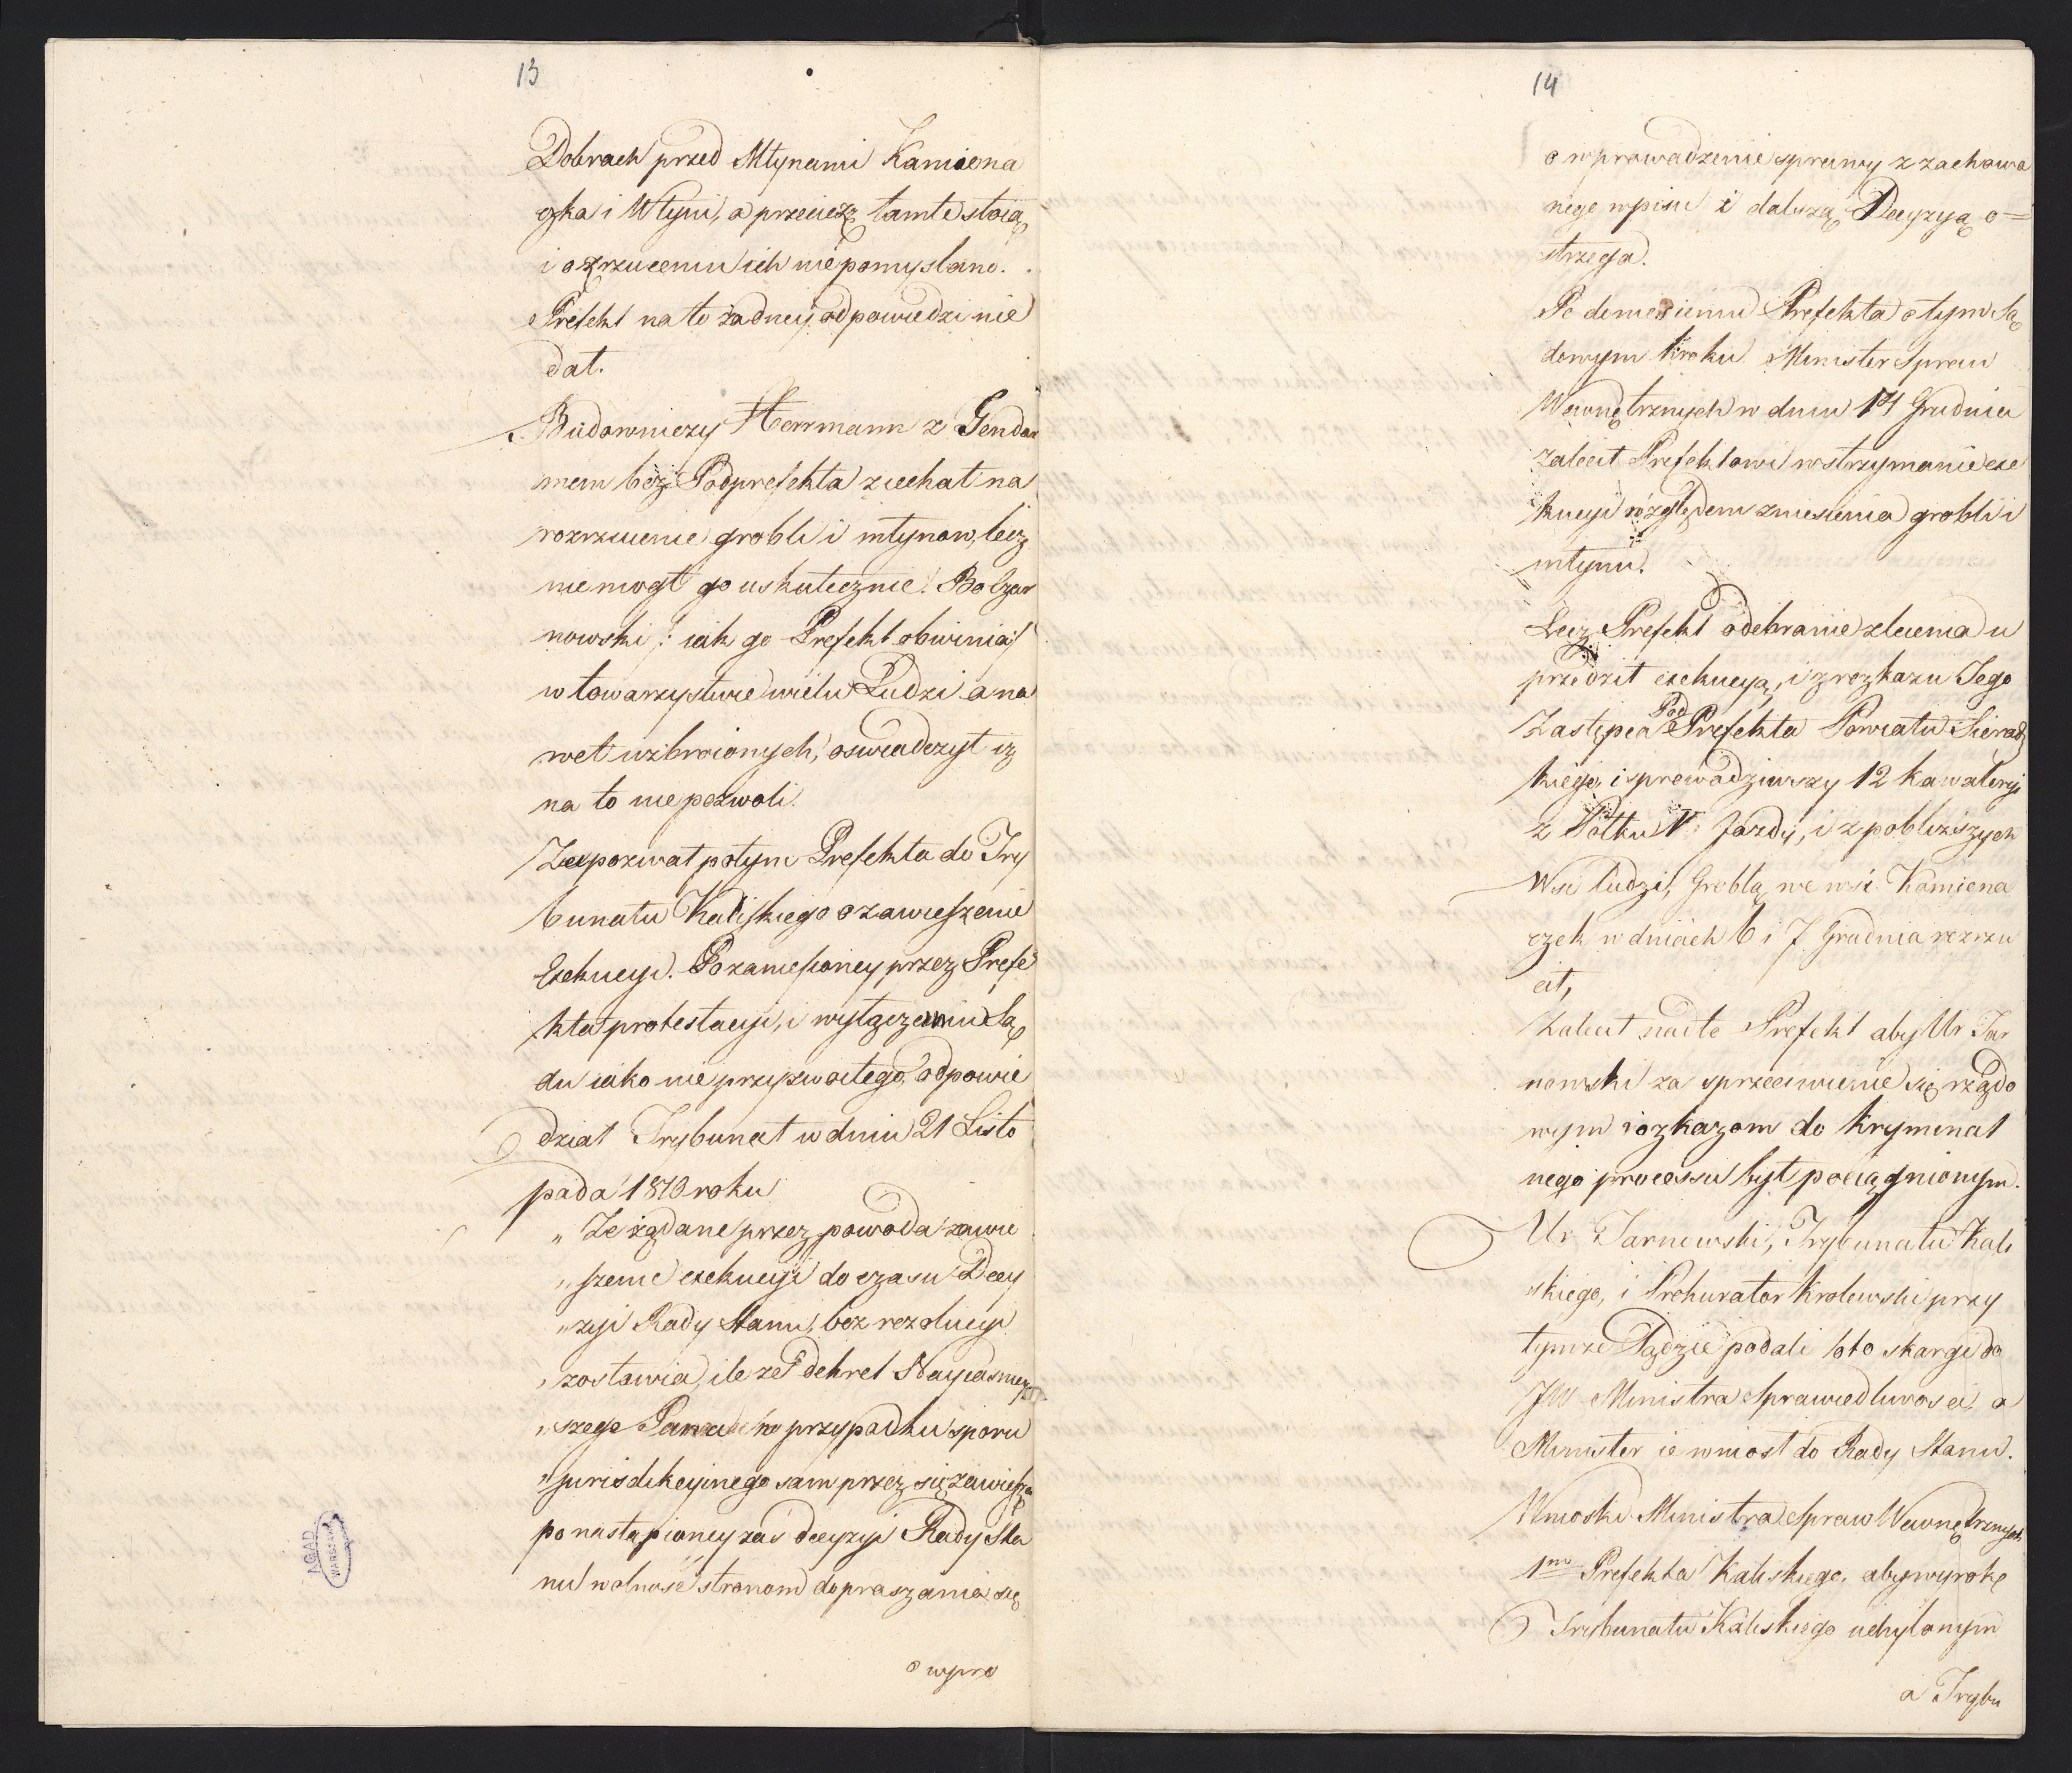 13
Dobrach przed Młynami Kamiona
czka i Mtyni, a przecież tamte stoią
i o zrzuceniu ich nie pomyslano.
Prefekt na to żadney odpowiedzi nie
dał.
Budowniczy Herrmann z Gendar
mem bez Podprefekta ziechał na
rozrzucenie grobli i młynow, lecz
nie mogł go uskutecznić. Bo Czar
nowski /: iak go Prefekt obwinia /
w towarzystwie wielu Ludzi a na
wet uzbroionych, oswiadczył iż
na to nie pozwoli.
Zapozwał potym Prefekta do Try
bunału Kaliskiego o zawieszenie
Exekucyi. Po zaniesioney przez Prefe
kta protestacyi, i wyłączeniu Są
du iako nie przyzwoitego, odpowie
dział Trybunał w dniu 21 Listo
pada 1810 roku
„ Ze żądane przez powoda zawie
„ szenie exekucyi do czasu Decy
„ zyi Rady Stanu, bez rezolucyi
„ zostawia, ile ze dekret Nayiasniey
„ szego Pana w przypadku sporu
„ jurisdikcyinego sam przez się zawiesza
po nastąpioney zaś decyzyi Rady Sta
nu wolnosć stronom dopraszania się
o wpro
AGAD
WARSZAWA
14
o wprowadzenie sprawy z zachowa
nego wpisu i dalszą Decyzyą o=
strzega.
Po doniesieniu Prefekta o tym Są
dowym kroku Minister Spraw
Wewnętrznych w dniu 14 Grudnia
zalecił Prefektowi wstrzymanie exe
kucyi względem zniesienia grobli i
młynu.
Lecz Prefekt odebranie zlecenia u
przedził exekucyą, i z rozkazu Jego
Zastępca Pod Prefekta Powiatu Sieradz
kiego, i sprowadziwszy 12 kawaleryi
z Półku V. Jazdy, i z pobliższych
Wsi ludzi, Groblą we wsi Kamiona
czek w dniach 6 i 7 Grudnia rozrzu
cił,
Zalecił nadto Prefekt aby Ur Tar
nowski za sprzeciwienie się rządo
wym rozkazom do kryminal
nego processu był pociągnionym.
Ur Tarnowski, Trybunału Kali
skiego, i Prokurator Krolewski przy
tymże Sądzie podali o to skargi do
JW Ministra Sprawiedliwosci, a
Minister ie wniosł do Rady Stanu.
Wnioski Ministra Spraw Wewnętrznych
1mo Prefekta Kaliskiego, aby wyrok
Trybunału Kaliskiego uchylonym
a Trybu